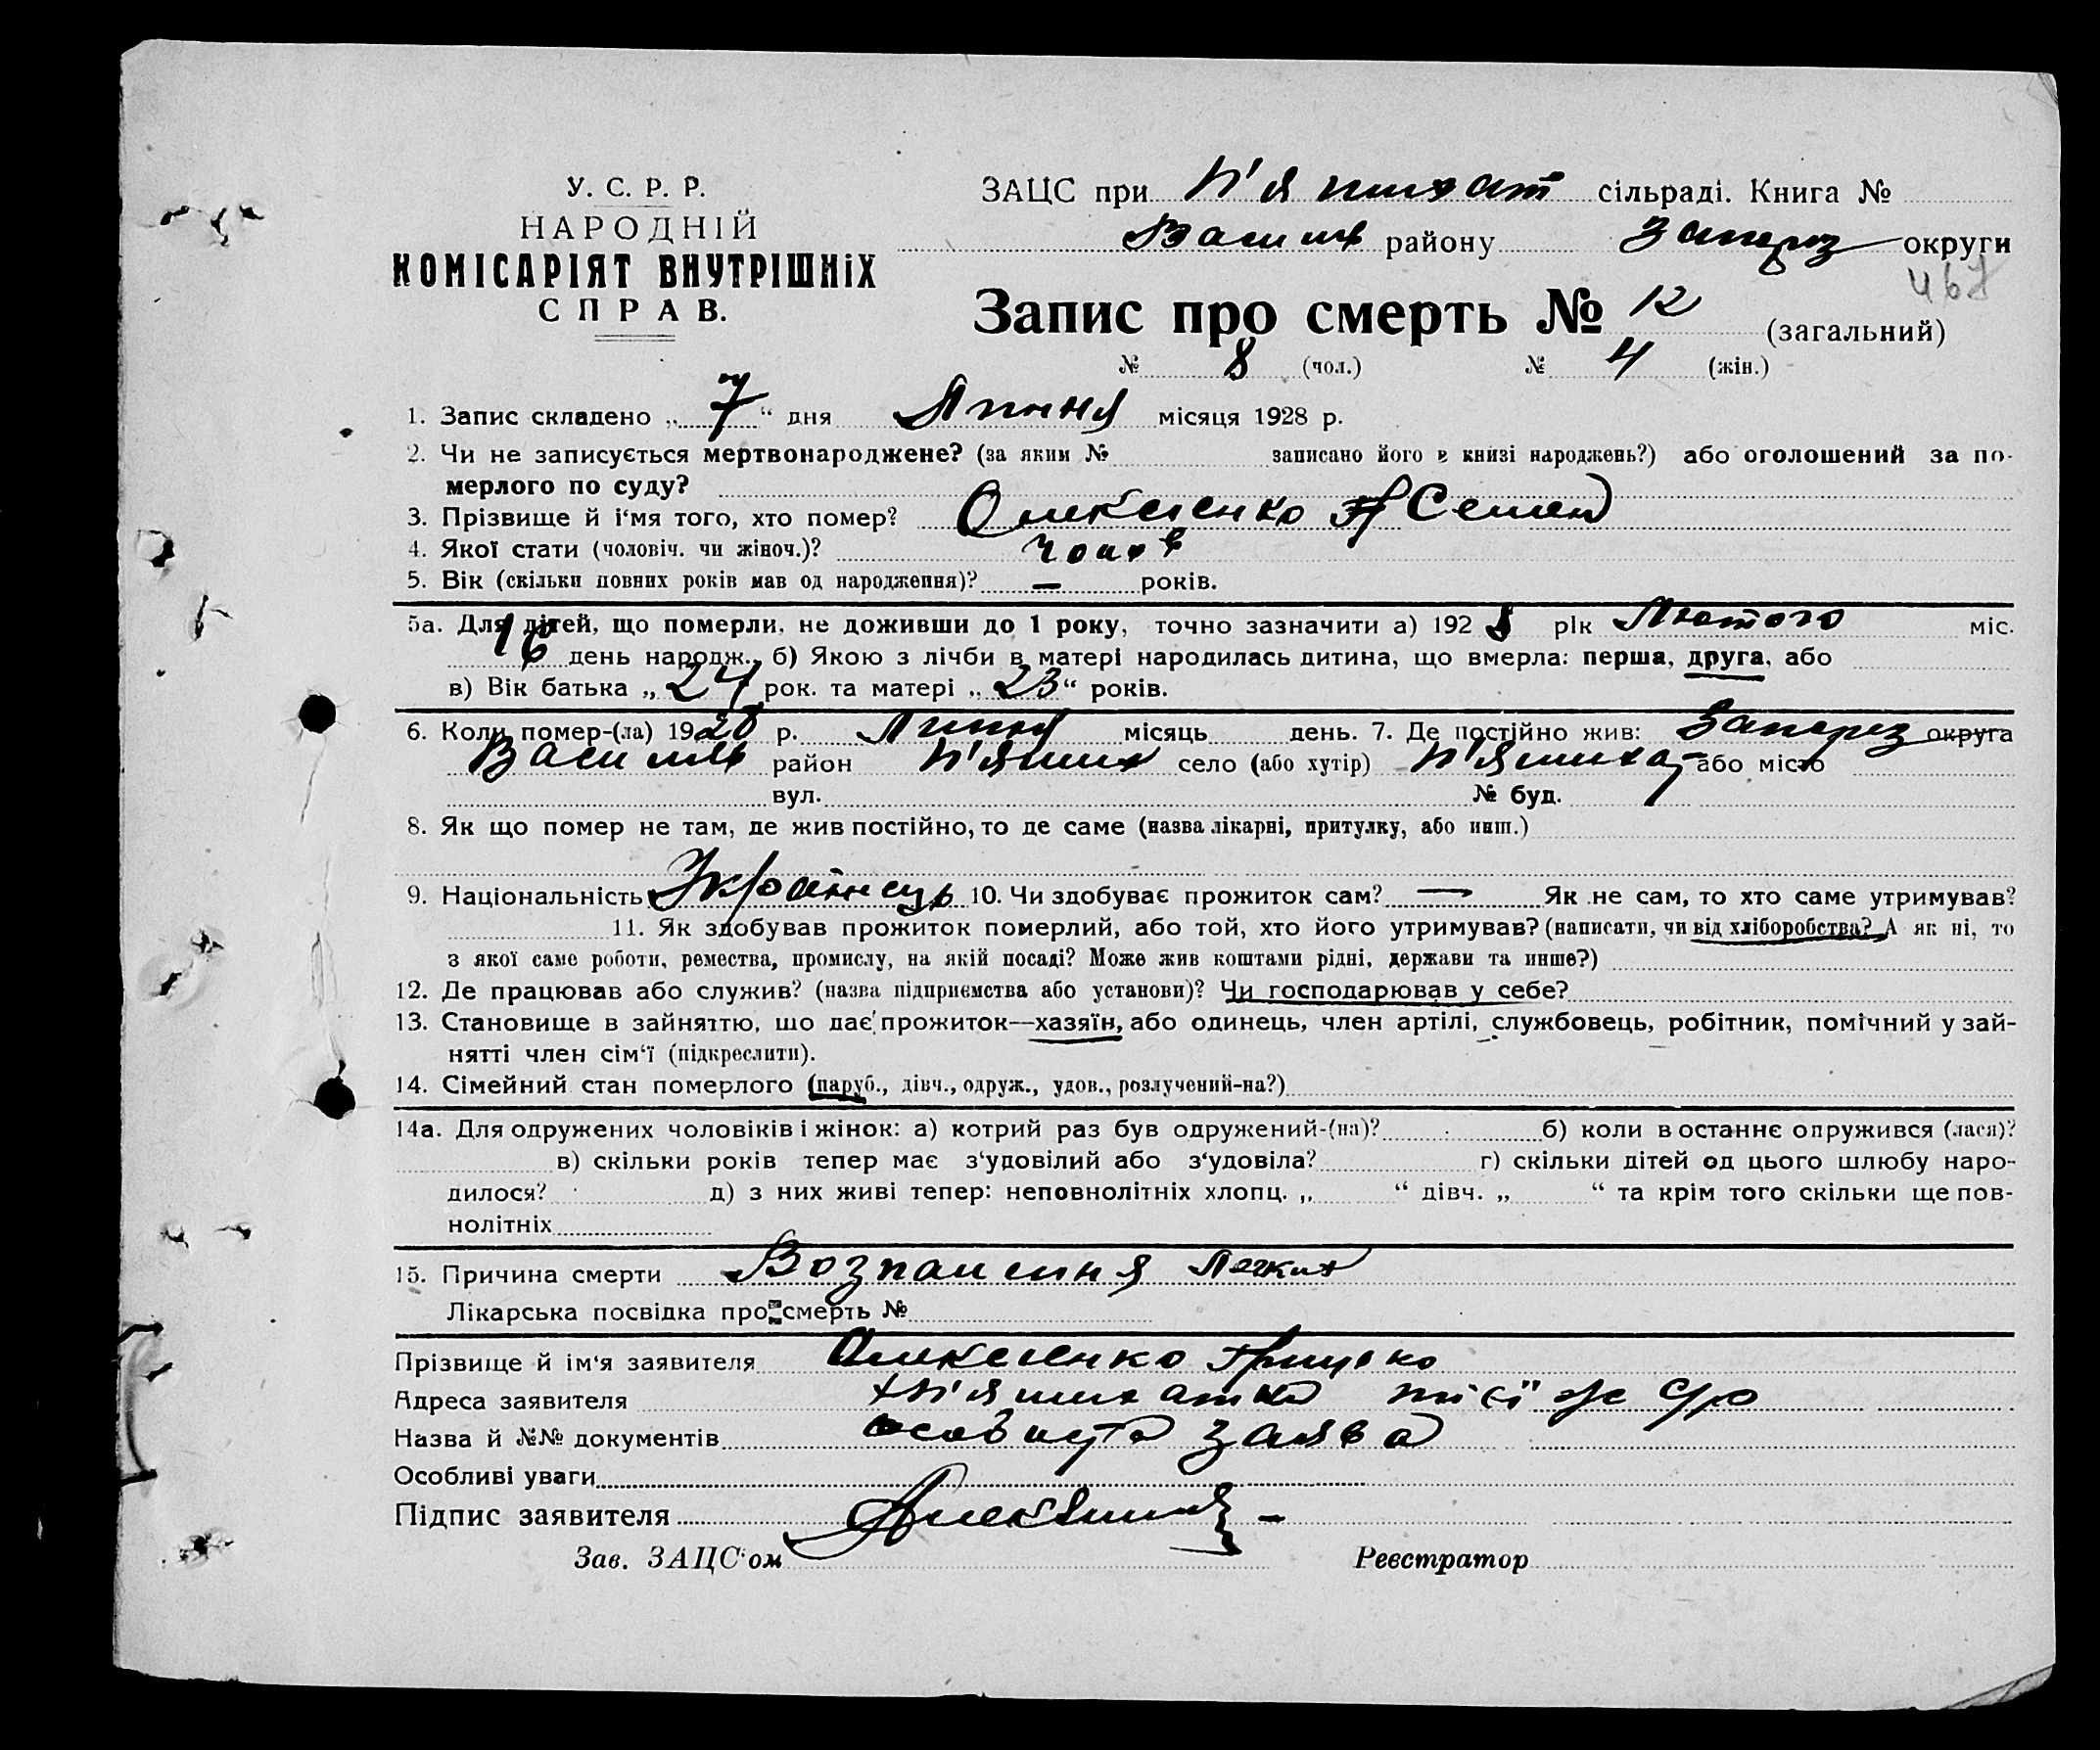 У. С. Р. Р.
НАРОДНІЙ
КОМІСАРІЯТ ВНУТРІШНІХ
СПРАВ.
ЗАЦС при П'ятихат сільраді. Книга №
Василів району Запоріз округи
467
Запис про смерть № 12 (загальний)
№ 8 (чол.) № 4 (жін.)
1. Запис складено „ 7 “ дня Липня місяця 1928 р.
2. Чи не записується мертвонароджене? (за яким № записано його в книзі народжень?) або оголошений за по-
мерлого по суду?
3. Прізвище й і‘мя того, хто помер? Олексієнко Семен
4. Якої стати (чоловіч. чи жіноч.)? чолов
5. Вік (скільки повних років мав од народження)? — років.
5а. Для дітей, що померли, не доживши до 1 року, точно зазначити а) 192 8 рік Лютого міс.
16 день народж., б) Якою з лічби в матері народилась дитина, що вмерла: перша, друга, або
в) Вік батька „ 24 рок. та матері „ 23 “ років.
6. Коли помер-(ла) 1928 р. Липня місяць день. 7. Де постійно жив: Запоріз округа
Василів район П'ятих село (або хутір) П'ятихат або місто
вул. № буд.
8. Як що помер не там, де жив постійно, то де саме (назва лікарні, притулку, або инш.)
9. Національність Українець 10. Чи здобуває прожиток сам? — Як не сам, то хто саме утримував?
11. Як здобував прожиток померлий, або той, хто його утримував? (написати, чи від хліборобства? А як ні, то
з якої саме роботи, ремества, промислу, на якій посаді? Може жив коштами рідні, держави та инше?)
12. Де працював або служив? (назва підприємства або установи)? Чи господарював у себе?
13. Становище в зайняттю, що дає прожиток—хазяїн, або одинець, член артілі, службовець, робітник, помічний у зай-
нятті член сім‘ї (підкреслити).
14. Сімейний стан померлого (паруб., дівч., одруж., удов., розлучений-на?)
14а. Для одружених чоловіків і жінок: а) котрий раз був одружений-(на)? б) коли востаннє опружився (лася)?
в) скільки років тепер має з‘удовілий або з‘удовіла? г) скільки дітей од цього шлюбу наро-
дилося? д) з них живі тепер: неповнолітніх хлопц. „ “ дівч. „ “ та крім того скільки ще пов-
нолітніх
15. Причина смерти Возпалення Легких
Лікарська посвідка про смерть №
Прізвище й ім‘я заявителя Олексієнко Грицько
Адреса заявителя П'ятихатка тієї ж с/р
Назва й №№ документів особиста заява
Особливі уваги
Підпис заявителя
Зав. ЗАЦС‘ом Реєстратор